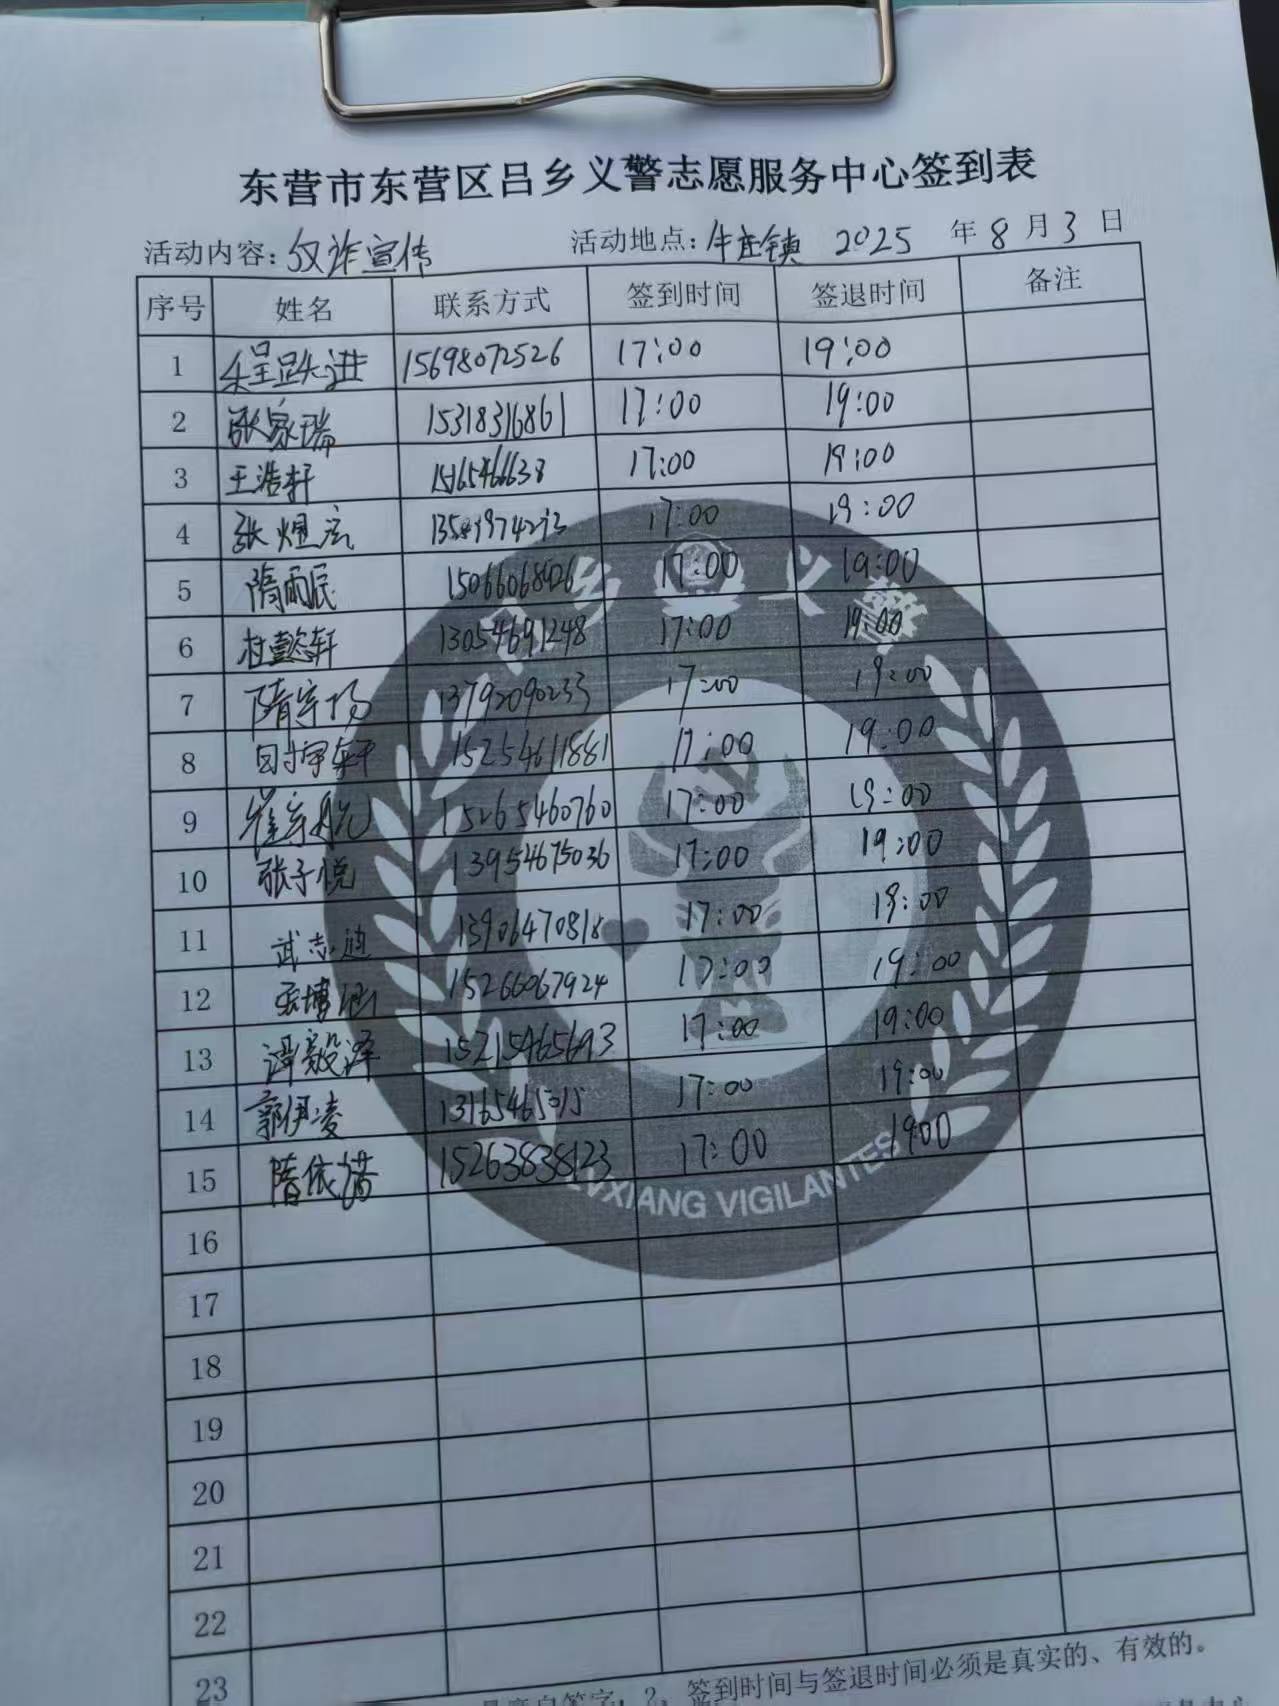 东营市东营区吕乡义警志愿服务中心签到表
活动内容：反诈宣传 活动地点：牛庄镇 2025 年 8 月 3 日
序号 姓名 联系方式 签到时间 签退时间 备注
1 15698072526 17:00 19:00
2 张家瑞 15318316861 17:00 19:00
3 王浩轩 17:00 19:00
4 张煜宏 17:00 19:00
5 隋雨辰 15066068426 17:00 19:00
6 杜懿轩 13054691248 17:00 19:00
7 隋宇扬 13792090233 17:00 19:00
8 15254611881 17:00 19:00
9 崔京航 15265460760 17:00 19:00
10 张子悦 13954675036 17:00 19:00
11 武志迪 13906470818 17:00 19:00
12 15266067924 17:00 19:00
13 冯毅泽 15215465693 17:00 19:00
14 郭伊凌 13165465015 17:00 19:00
15 隋依诺 15263838123 17:00 19:00
16
17
18
19
20
21
22
23
乡 义警
VXIANG VIGILANTES
亲自签字；2、签到时间与签退时间必须是真实的、有效的。